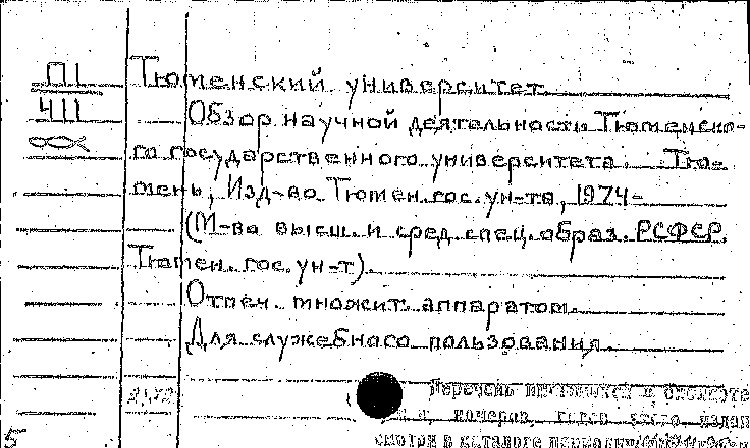 П1
411
Тюменский университет.
Обзор научной деятельности Тюменско-
го государственного университета. Тю-
мень, Изд-во Тюмен. гос. ун-та, 1974-
(М-во высш. и сред. спец. образ. РСФСР.
Тюмен. гос. ун-т).
Отпеч. множит. аппаратом.
Для служебного пользования.
Перечень имеющихся в библиоте
номеров, годов этого издан
смотри в каталоге
5